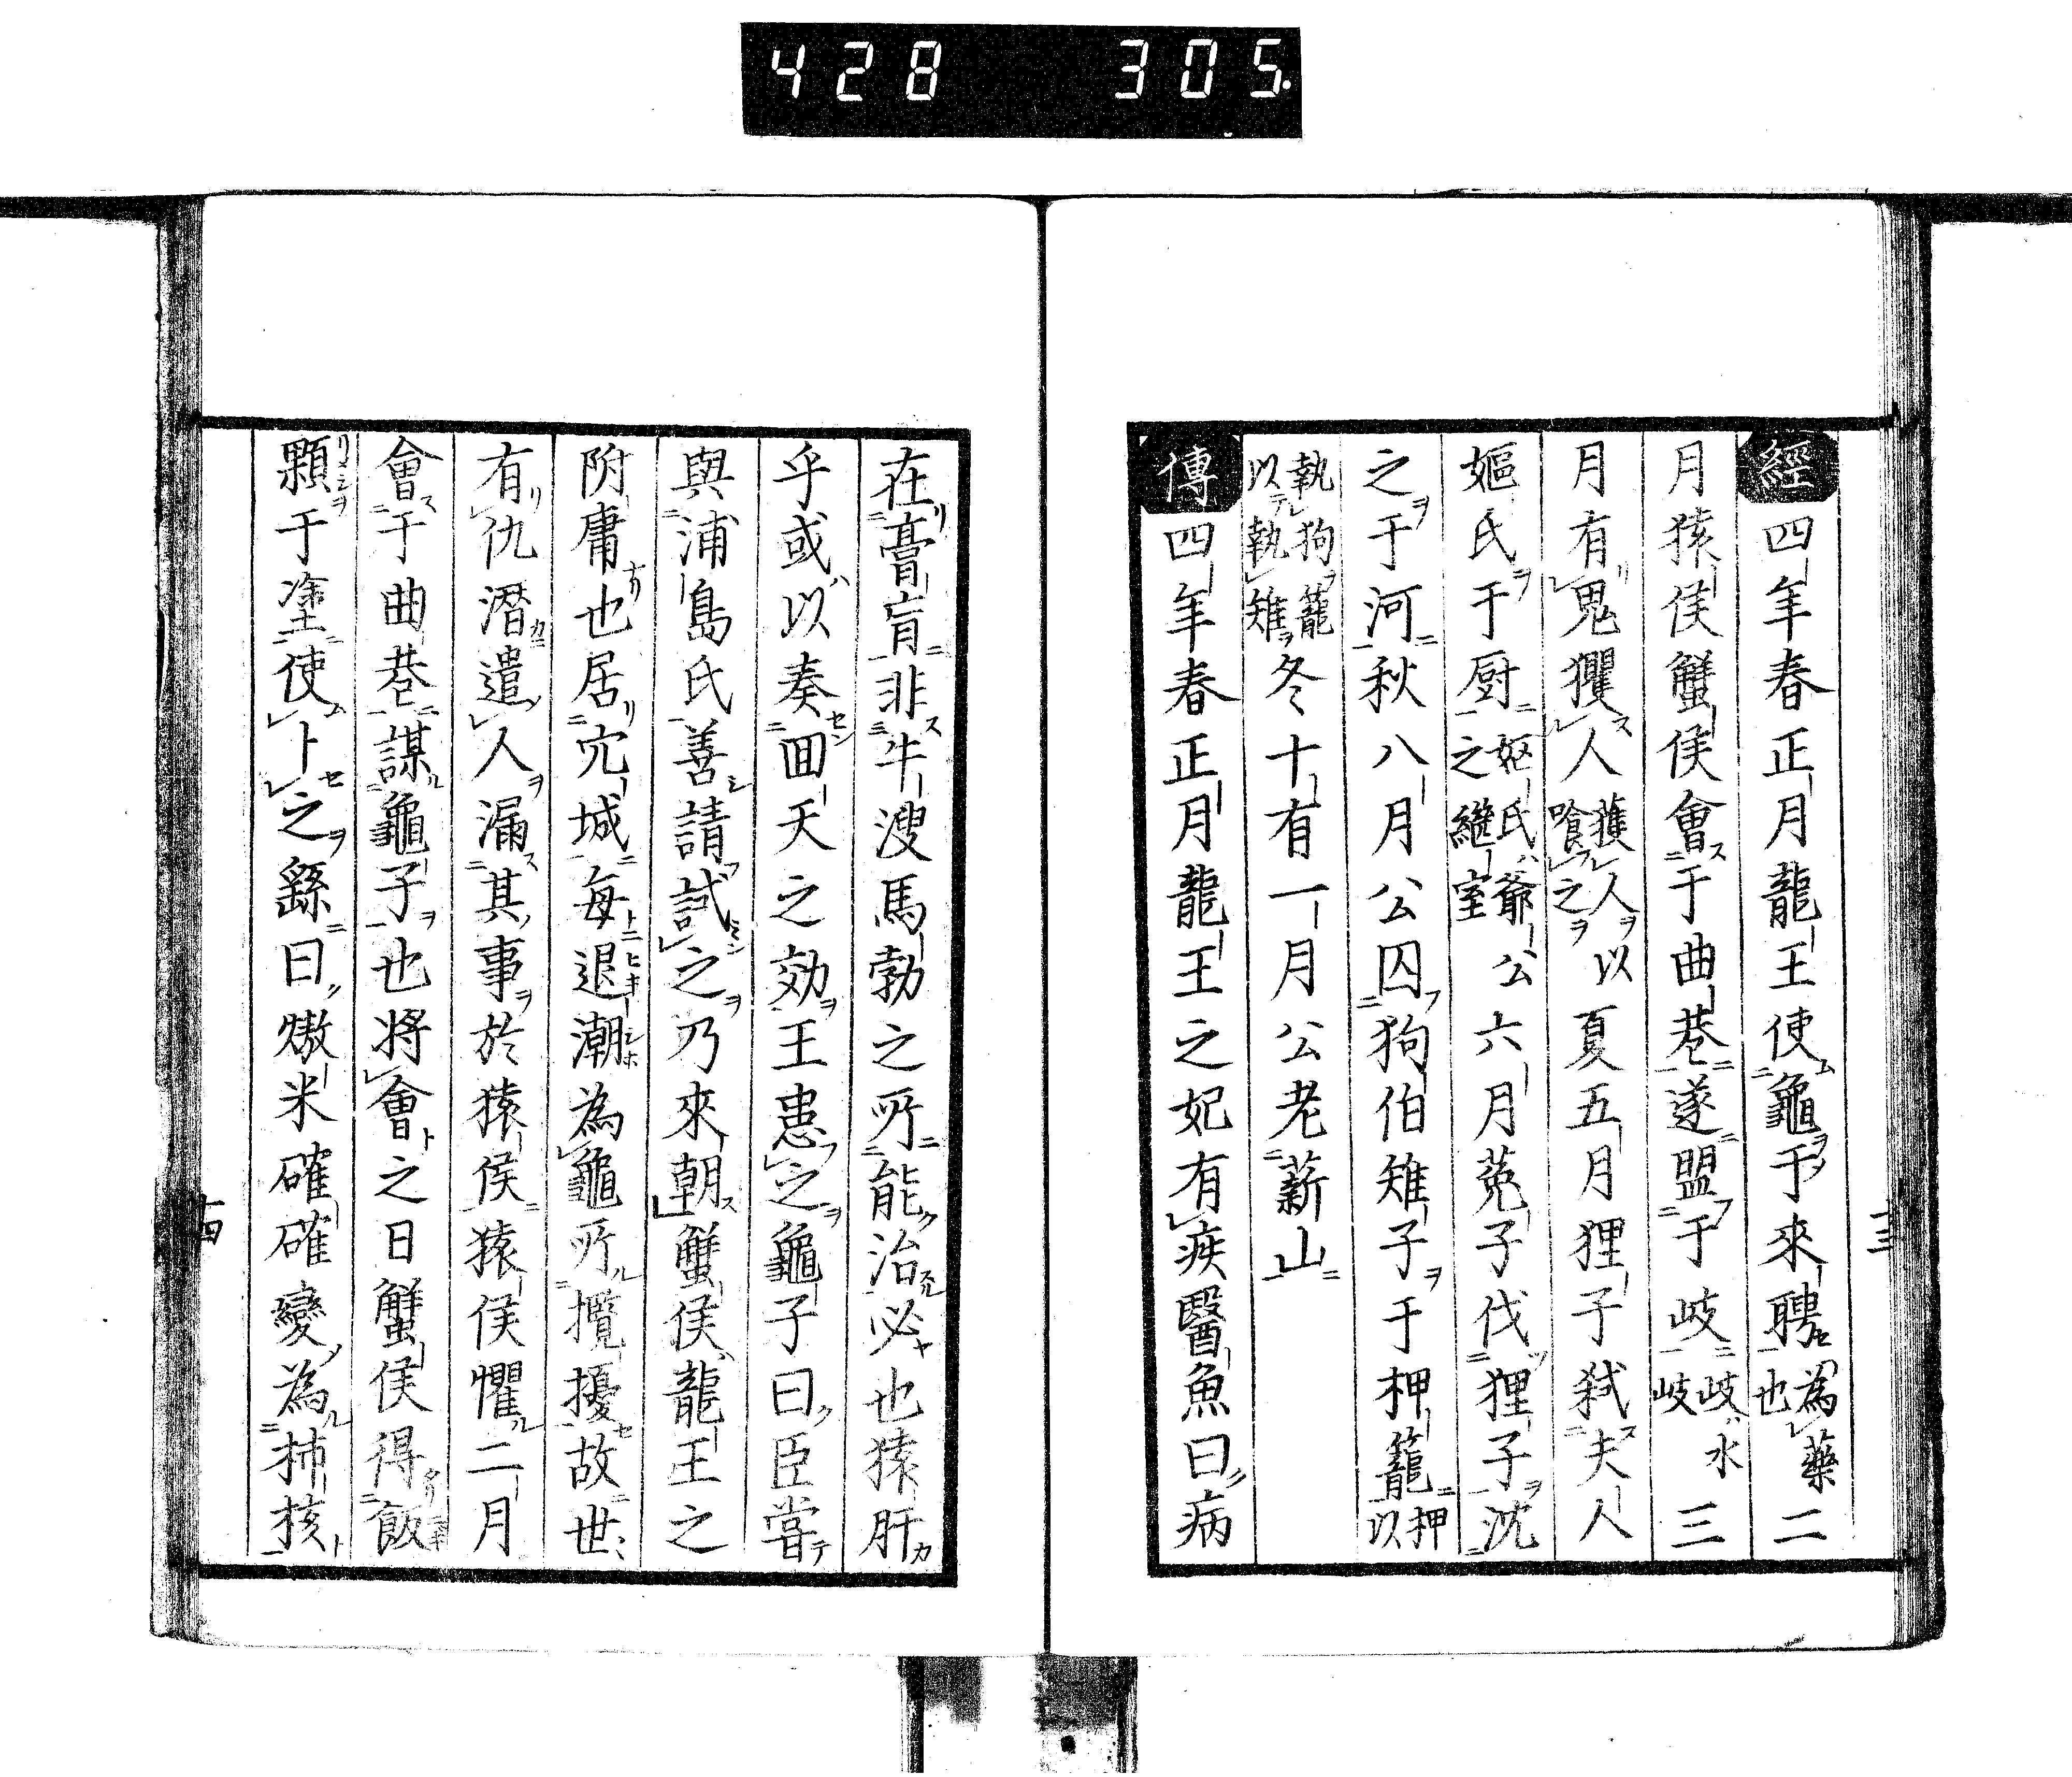 428 305.
經四年春正月龍王使龜于來聘為藥也二
月猿侯蟹侯會于曲巷遂盟于岐岐水岐三
月有鬼玃人獲人以喰之夏五月狸子弒夫人
嫗氏于厨妪氏爺公之繼室六月菟子伐狸子沈
之于河秋八月公囚狗伯雉子于柙籠柙以
執狗籠以執雉冬十有一月公老薪山
傳四年春正月龍王之妃有疾醫魚曰病
十三
在膏肓非牛溲馬勃之所能治必也猿肝
乎或以奏囬天之効王患之龜子曰臣嘗
與浦島氏善請試之乃來朝蟹侯龍王之
附庸也居穴城每退潮為龜所攪擾故世
有仇潛遣人漏其事於猿侯猿侯懼二月
會于曲巷謀龜子也將會之日蟹侯得飯
顆于塗使卜之繇曰熬米確確變為柿核
十四